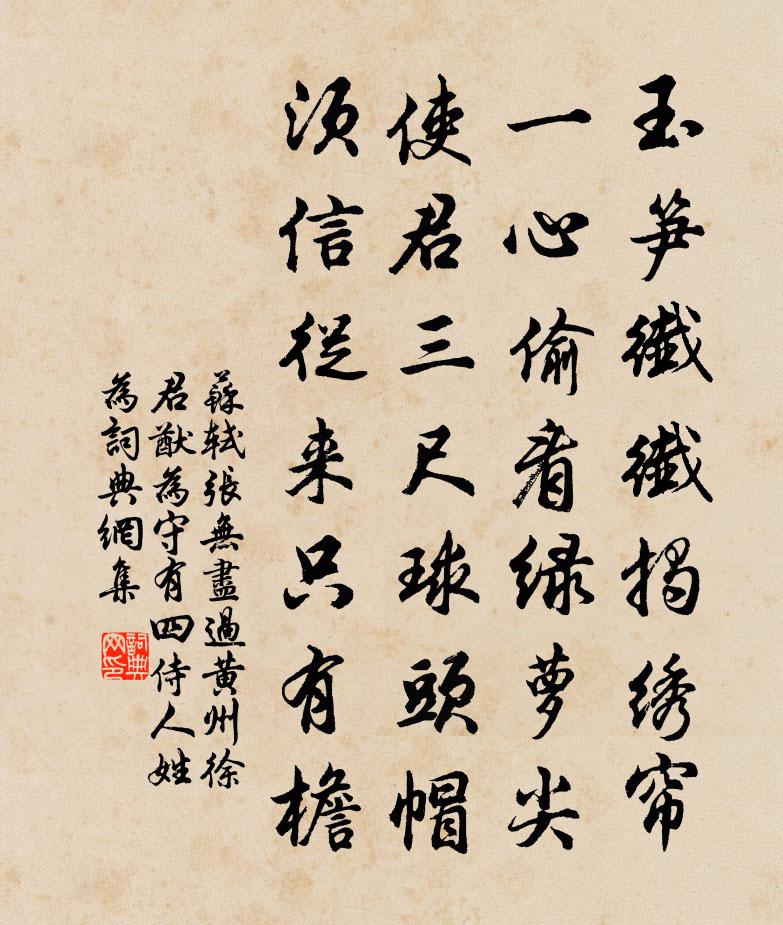 玉笋纖纖揭绣帘
一心偷看绿萝尖
使君三尺球頭帽
須信從来只有檐
蘇軾張無盡過黃州徐
君猷為守有四侍人姓
為詞典網集
詞典网印